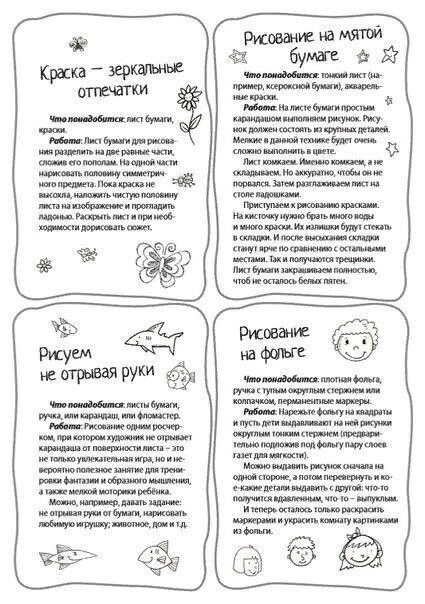 Краска — зеркальные
отпечатки
Что понадобится: лист бумаги,
краски.
Работа: Лист бумаги для рисова-
ния разделить на две равные части,
сложив его пополам. На одной части
нарисовать половину симметрич-
ного предмета. Пока краска не
высохла, наложить чистую половину
листа на изображение и прогладить
ладонью. Раскрыть лист и при необ-
ходимости дорисовать сюжет.
Рисование на мятой
бумаге
Что понадобится: тонкий лист (на-
пример, ксероксной бумаги), акварель-
ные краски.
Работа: На листе бумаги простым
карандашом выполняем рисунок. Рису-
нок должен состоять из крупных деталей.
Мелкие в данной технике будет очень
сложно выполнить в цвете.
Лист комкаем. Именно комкаем, а не
складываем. Но аккуратно, чтобы он не
порвался. Затем разглаживаем лист на
столе ладошками.
Приступаем к рисованию красками.
На кисточку нужно брать много воды
и много краски. Их излишки будут стекать
в складки. И после высыхания складки
станут ярче по сравнению с остальными
местами. Так и получаются трещинки.
Лист бумаги закрашиваем полностью,
чтоб не осталось белых пятен.
Рисуем
не отрывая руки
Что понадобится: листы бумаги,
ручка, или карандаш, или фломастер.
Работа: Рисование одним росчер-
ком, при котором художник не отрывает
карандаша от поверхности листа – это
не только увлекательная игра, но и не-
вероятно полезное занятие для трени-
ровки фантазии и образного мышления,
а также мелкой моторики ребёнка.
Можно, например, давать задание:
не отрывая руки от бумаги, нарисовать
любимую игрушку; животное, дом и т.д.
Рисование
на фольге
Что понадобится: плотная фольга,
ручка с тупым округлым стержнем или
колпачком, перманентные маркеры.
Работа: Нарежьте фольгу на квадраты
и пусть дети выдавливают на ней рисунки
округлым тонким стержнем (предвари-
тельно подложив под фольгу пару слоев
газет для мягкости).
Можно выдавить рисунок сначала на
одной стороне, а потом перевернуть и ко-
е-какие детали выдавить с другой: что-то
получится вдавленным, что-то – выпуклым.
И теперь осталось только раскрасить
маркерами и украсить комнату картинками
из фольги.